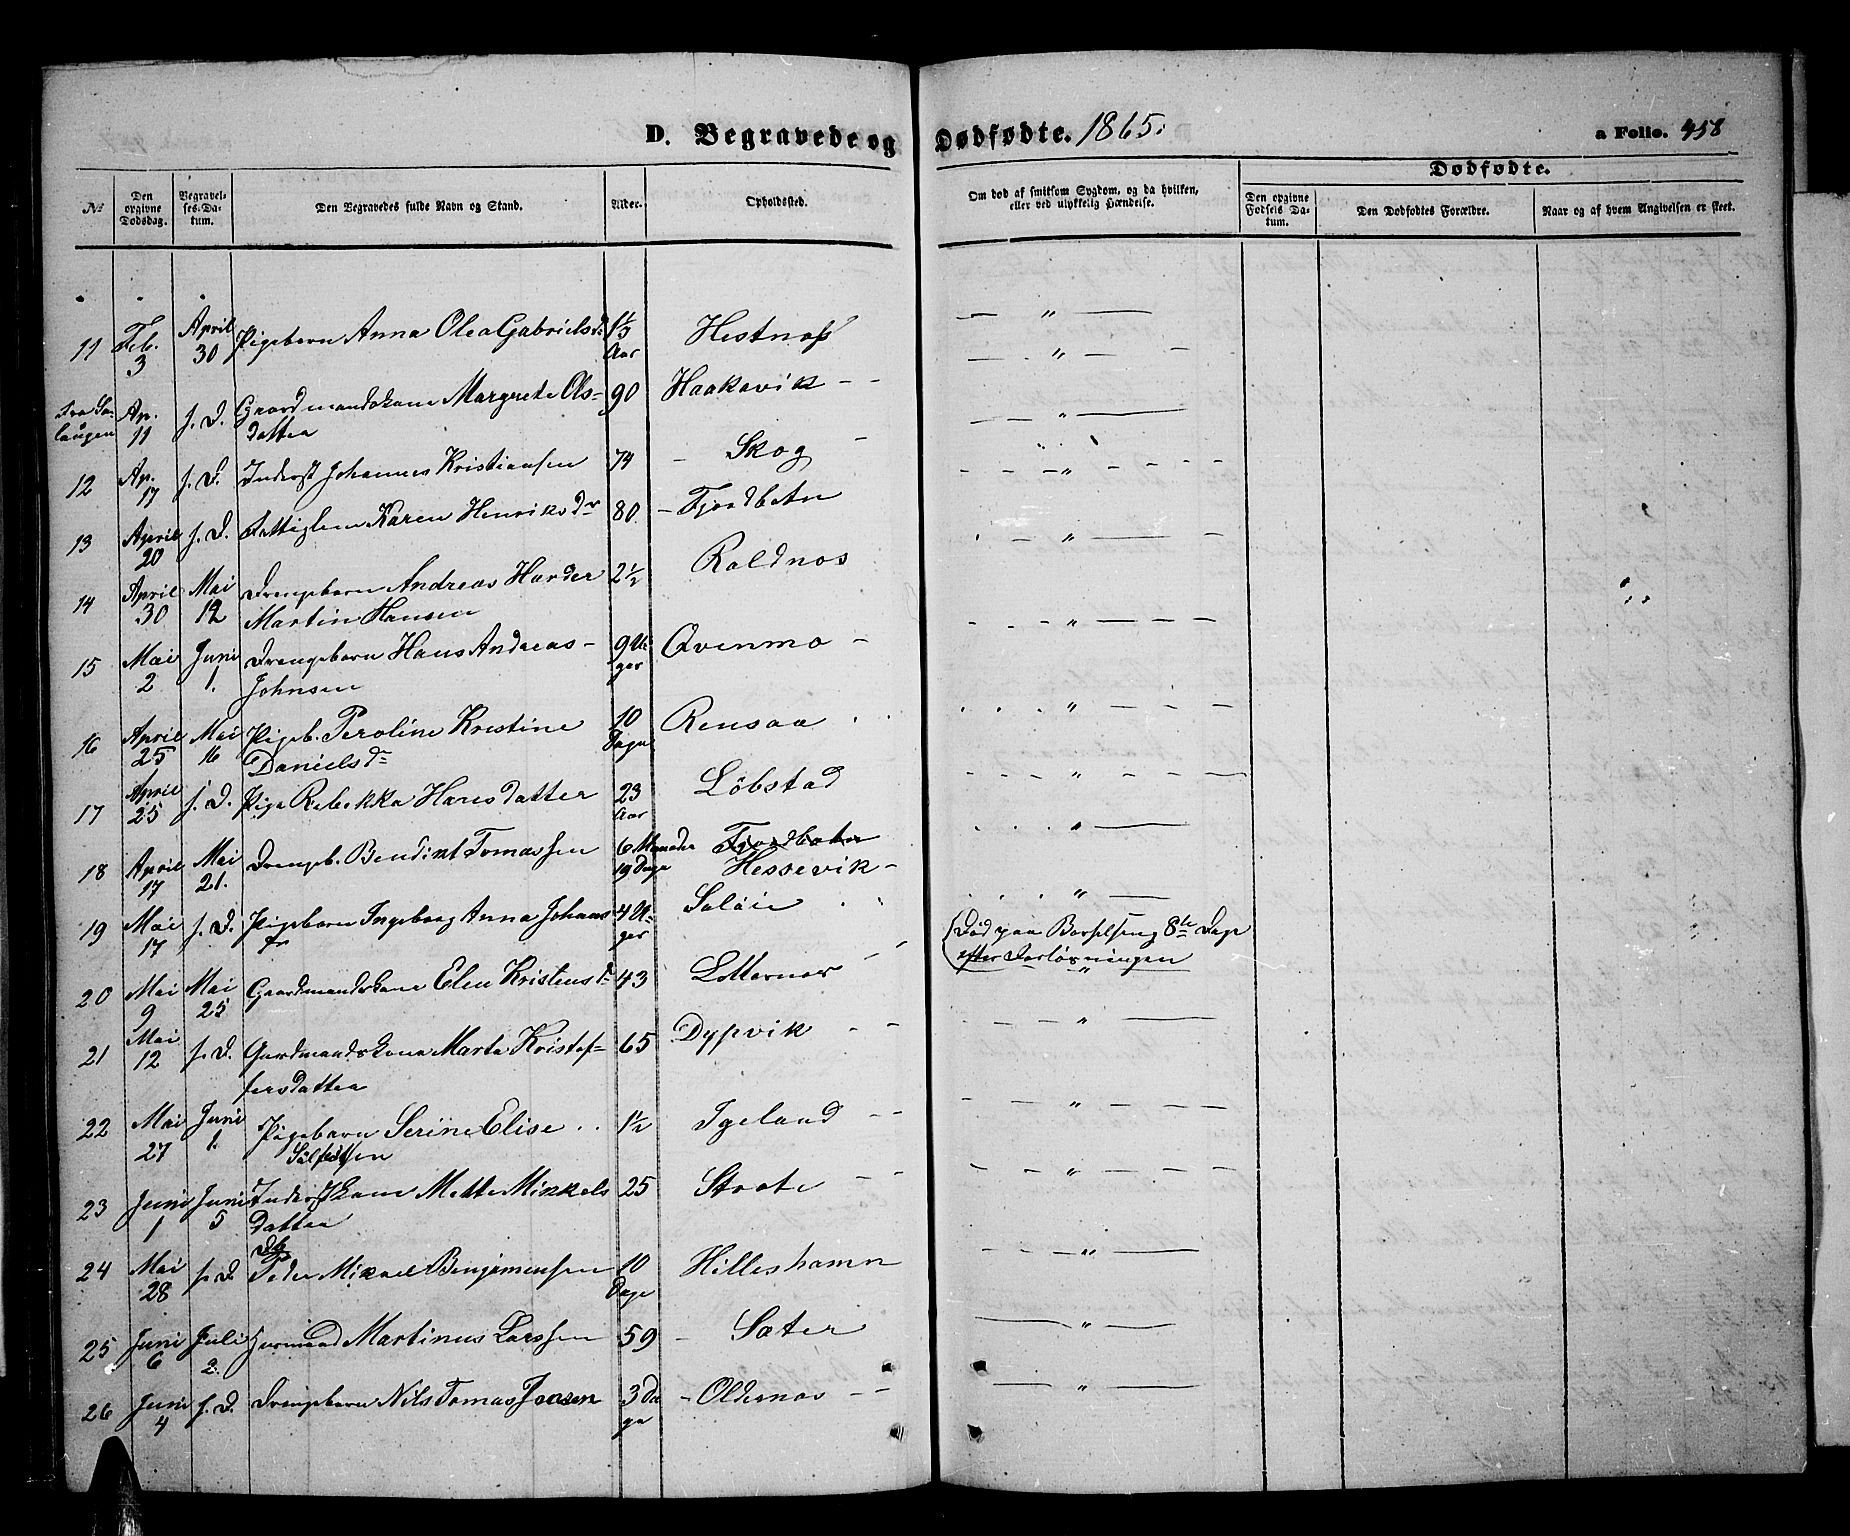 D. Begravede og Dødfødte. 1865.
a Folio. 458
No
Den opgivne Dødsdag.
Begravelses-Datum.
Den Begravedes fulde Navn og Stand.
Alder.
Opholdssted.
Om død af smitsom Sygdom, og da hvilken, eller ved ulykkelig Hændelse.
Dødfødte.
Den opgivne Fødsels Datum.
Den Dødfødtes Forældre.
Naar og af hvem Angivelsen er skeet.
11 Feb. 3 April 30 Pigebarn Anna Olea Gabrielsd. Aar Hestnæs
Fra Salangen Ap. 11 s. D. Gaardmandskone Margrete Ols- 90 Haakavik - -
datter
12 Ap. 17 s. D. Inderst Johannes Kristiansen 74 - Skog -
13 April 20 s. D. Fattiglem Karen Henriksdr 80 - Fjordbotn
14 April 30 Mai 12 Drengebarn Andreas Harder 2½ Roldnes
Martin Hansen
15 Mai 2 Juni 1. Drengebarn Hans Andreas- 9 Uger Qvenmo -
Johnsen
16 April 25 Mai 16 Pigeb. Peroline Kristine 10 Dage Rensaa
Danielsdr
17 April 25 s. D. Pige Rebekka Hansdatter 23 Aar Løbstad
18 April 17 Mai 21. Drengeb. Bendikt Tomassen 6 Maaneder 19 Dage Fjordbotn
Hessevik -
19 Mai 17 s. D. Pigebarn Ingeborg Anna Johans 4 Uger Saløie
dr
20 Mai 9 Mai 25 Gaardmandskone Elen Kristensdr 43 (Død paa Barselseng 8de Dage
efter Forløsningen
21 Mai 12 s. D. Gaardmandskone Marta Kristof- 65 Dypvik - -
fersdatter
22 Mai 27 Juni 1. Pigebarn Serine Elise .. 1½ Igeland - -
23 Juni 1 Juni 5 Inderstkone Mette Mikkels 25
Datter
24 Mai 28 s. D. Db Peder Mikael Benjamensen 10 Dage Hilleshamn
25 Juni 6 Juli 2. Gurmand Martinus Larssen 59 - Sæter
26 Juni 4 s. D. Drengebarn Nils Tomas Jensen 3 Dage - Oldernes - -